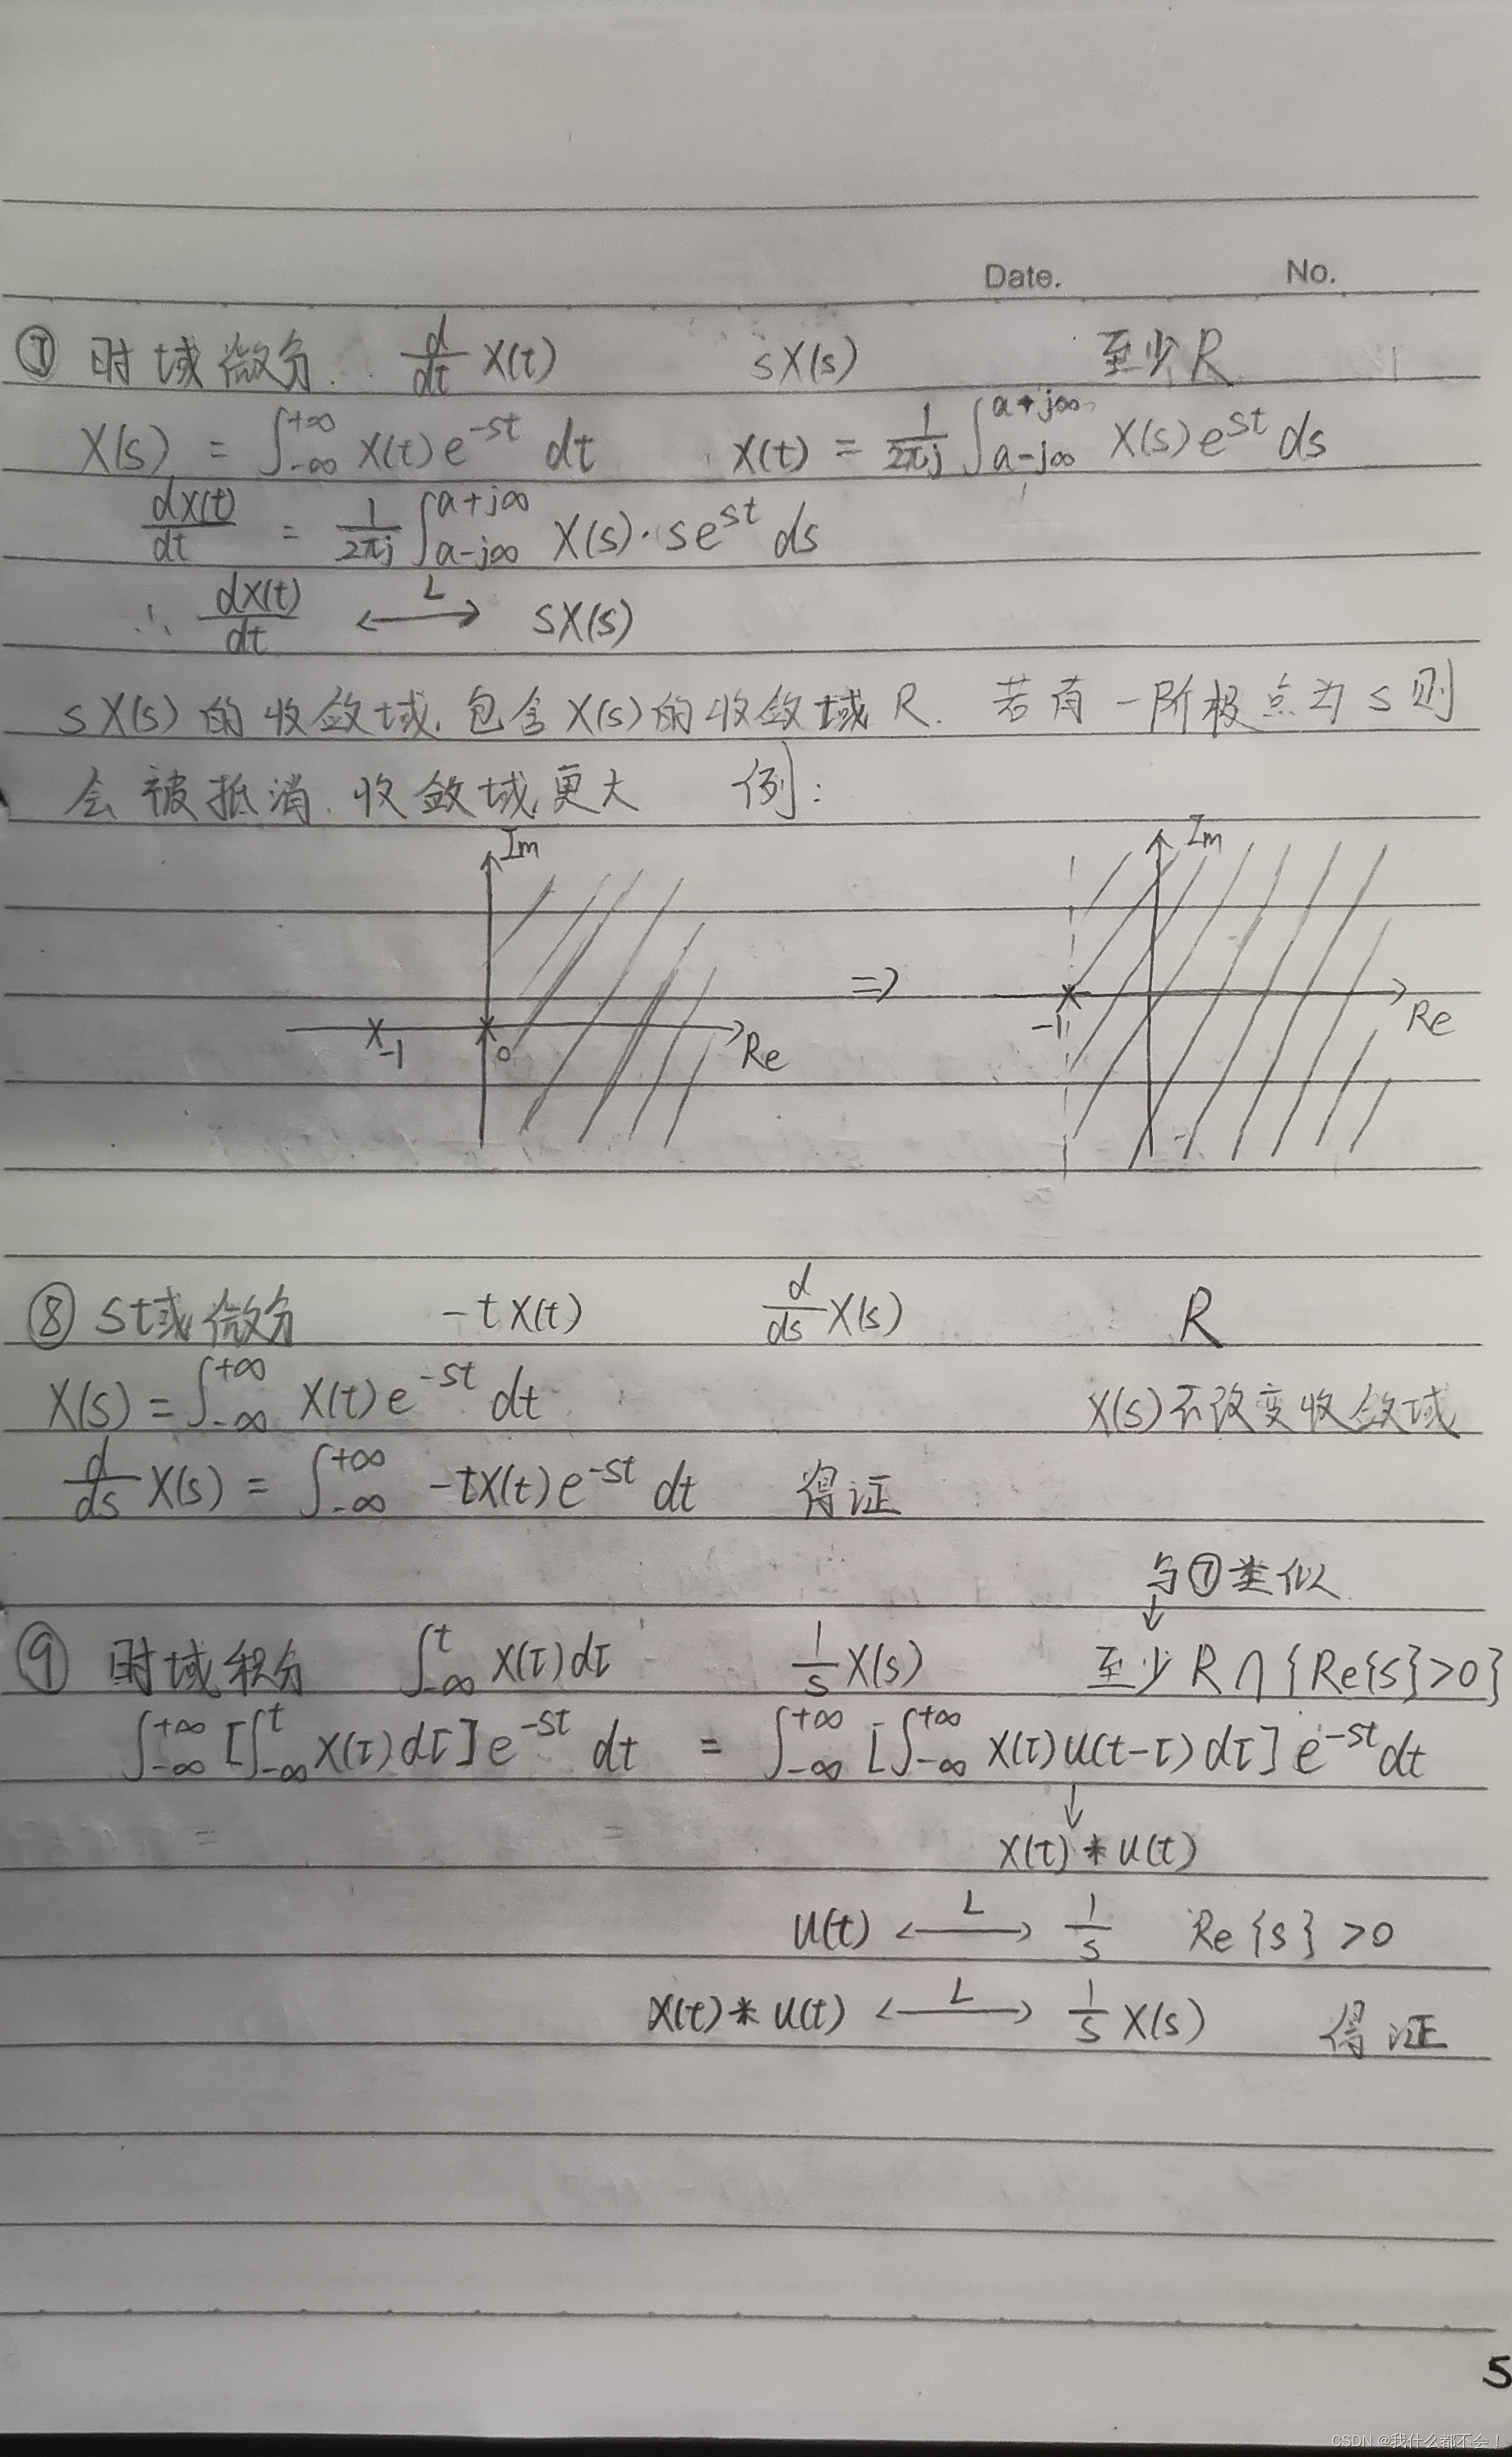 Date. No.
⑦ 时域微分. d/dt x(t) sX(s) 至少R
X(s) = ∫_{-∞}^{+∞} x(t)e^{-st} dt x(t) = 1/2πj ∫_{a-j∞}^{a+j∞} X(s)e^{st} ds
dx(t)/dt = 1/2πj ∫_{a-j∞}^{a+j∞} X(s)·se^{st} ds
∴ dx(t)/dt ←L→ sX(s)
sX(s) 的收敛域,包含X(s)的收敛域R. 若有一阶极点为s则
会被抵消.收敛域更大 例:
Im Im
⇒
-1 0 Re -1 Re
⑧ s域微分 -tx(t) d/ds X(s) R
X(s) = ∫_{-∞}^{+∞} x(t)e^{-st} dt X(s)不改变收敛域
d/ds X(s) = ∫_{-∞}^{+∞} -tx(t)e^{-st} dt 得证
与⑦类似
↓
⑨ 时域积分 ∫_{-∞}^{t} x(τ)dτ 1/s X(s) 至少R∩{Re{s}>0}
∫_{-∞}^{+∞} [∫_{-∞}^{t} x(τ)dτ]e^{-st} dt = ∫_{-∞}^{+∞} [∫_{-∞}^{+∞} x(τ)u(t-τ)dτ]e^{-st}dt
↓
x(t)*u(t)
u(t) ←L→ 1/s Re{s}>0
x(t)*u(t) ←L→ 1/s X(s) 得证
5
CSDN @我什么都不会!